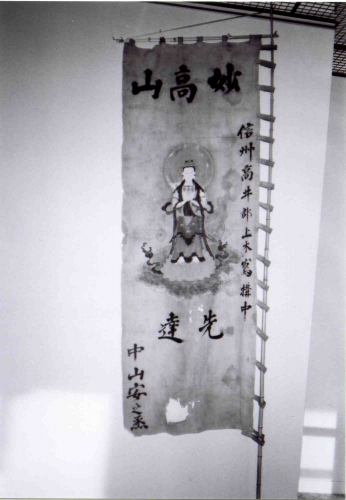 妙高山
信州高井郡上木島講中
先達
中山安之丞